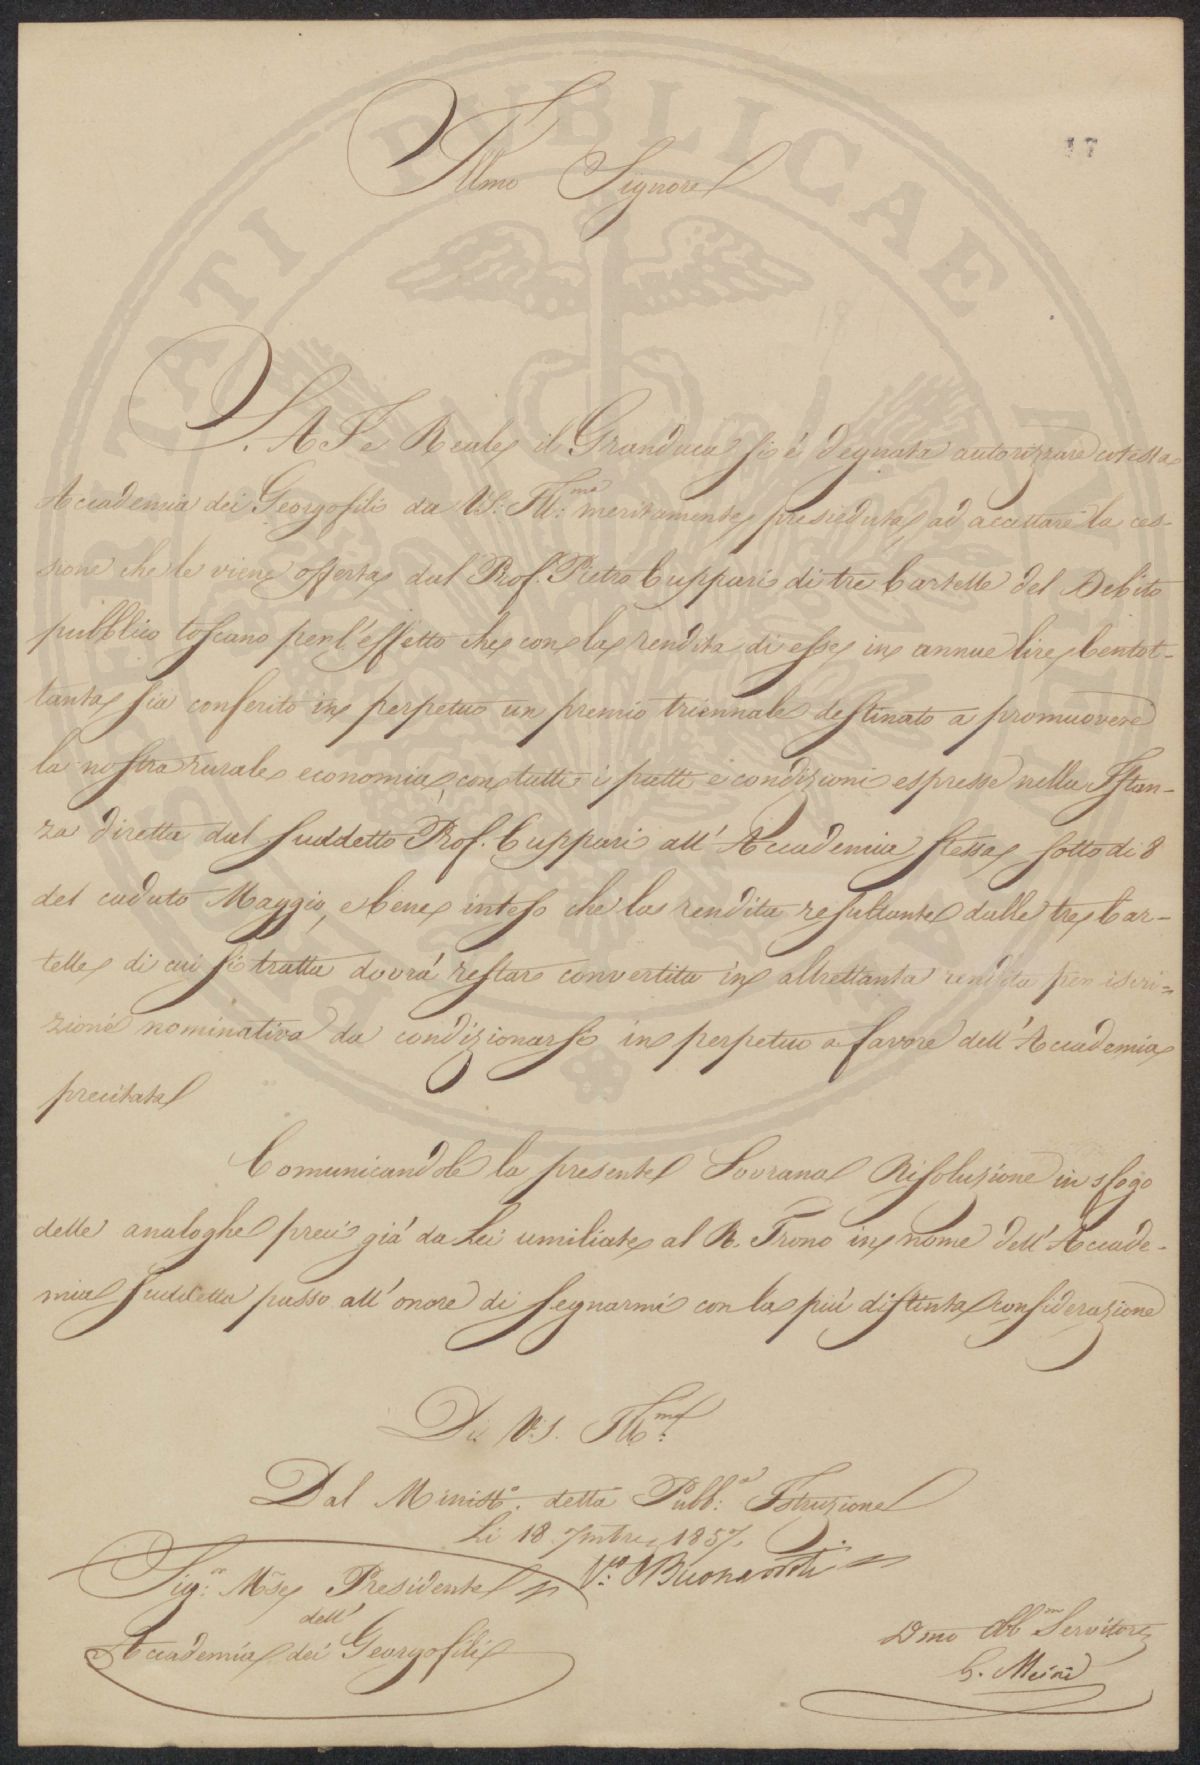 17
Illmo Signore
S. A I e Reale il Granduca si è degnata autorizzare cotesta
Accademia dei Georgofili da V. S. Ill:ma meritamente presieduta, ad accettare la ces-
sione che le viene offerta dal Prof. Pietro Cuppari di tre Cartelle del Debito
pubblico toscano per l'effetto che con la rendita di esse in annue lire Centot-
tanta sia conferito in perpetuo un premio triennale destinato a promuovere
la nostra rurale economia, con tutti i patti e condizioni espresse nella Istan-
za diretta dal suddetto Prof. Cuppari all'Accademia stessa sotto di 8
del caduto Maggio, e bene inteso che la rendita resultante dalle tre Car-
telle di cui si tratta dovrà restare convertita in altrettanta rendita per iscri=
zione nominativa da condizionarsi in perpetuo a favore dell'Accademia
precitata
Comunicandole la presente Sovrana Risoluzione in sfogo
delle analoghe preci già da Lei umiliate al R. Trono in nome dell'Accade-
mia suddetta passo all'onore di segnarmi con la più distinta considerazione
Di V. S. Ill:ma
Dal Ministo. della Pubb:a Istruzione
Li 18 7mbre 1857.
V:o Buonarroti
Sig:r Mse Presidente
dell'
Accademia dei Georgofili
Dmo Obbmo Servitore
PUBLICAE